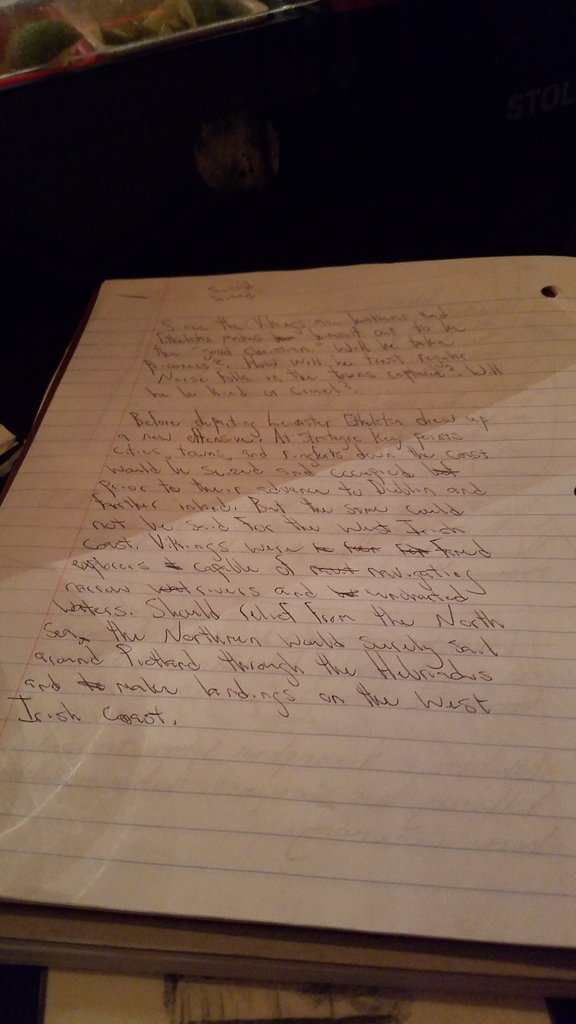 STOL
Since the Vikings are heathens, and
himself out to be
the "good Christian". Will he take
How will he treat regular
Norse folks in the towns captured? Will
he be kind or cruel?
Before departing Leinster Ethelstin drew up
a new offensive. At strategic key points
cities, towns, and ringforts down the coast
would be seized and occupied
prior to their advance to Dublin and
further inland. But the same could
not be said for the West Irish
coast. Vikings were famed
explorers capable of navigating
narrow rivers and uncharted
waters. Should relief from the North
Sea, the Northmen would surely sail
around Pictland through the Hebrides
and make landings on the West
Irish Coast.